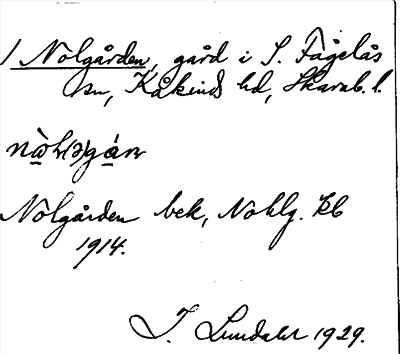 / Nolgården, gård i S. Fågelås
sn, Kåkinds hd, Skarab. l.
Nolgården bek, Nohlg. kb
1914.
J. Lundahl 1929.